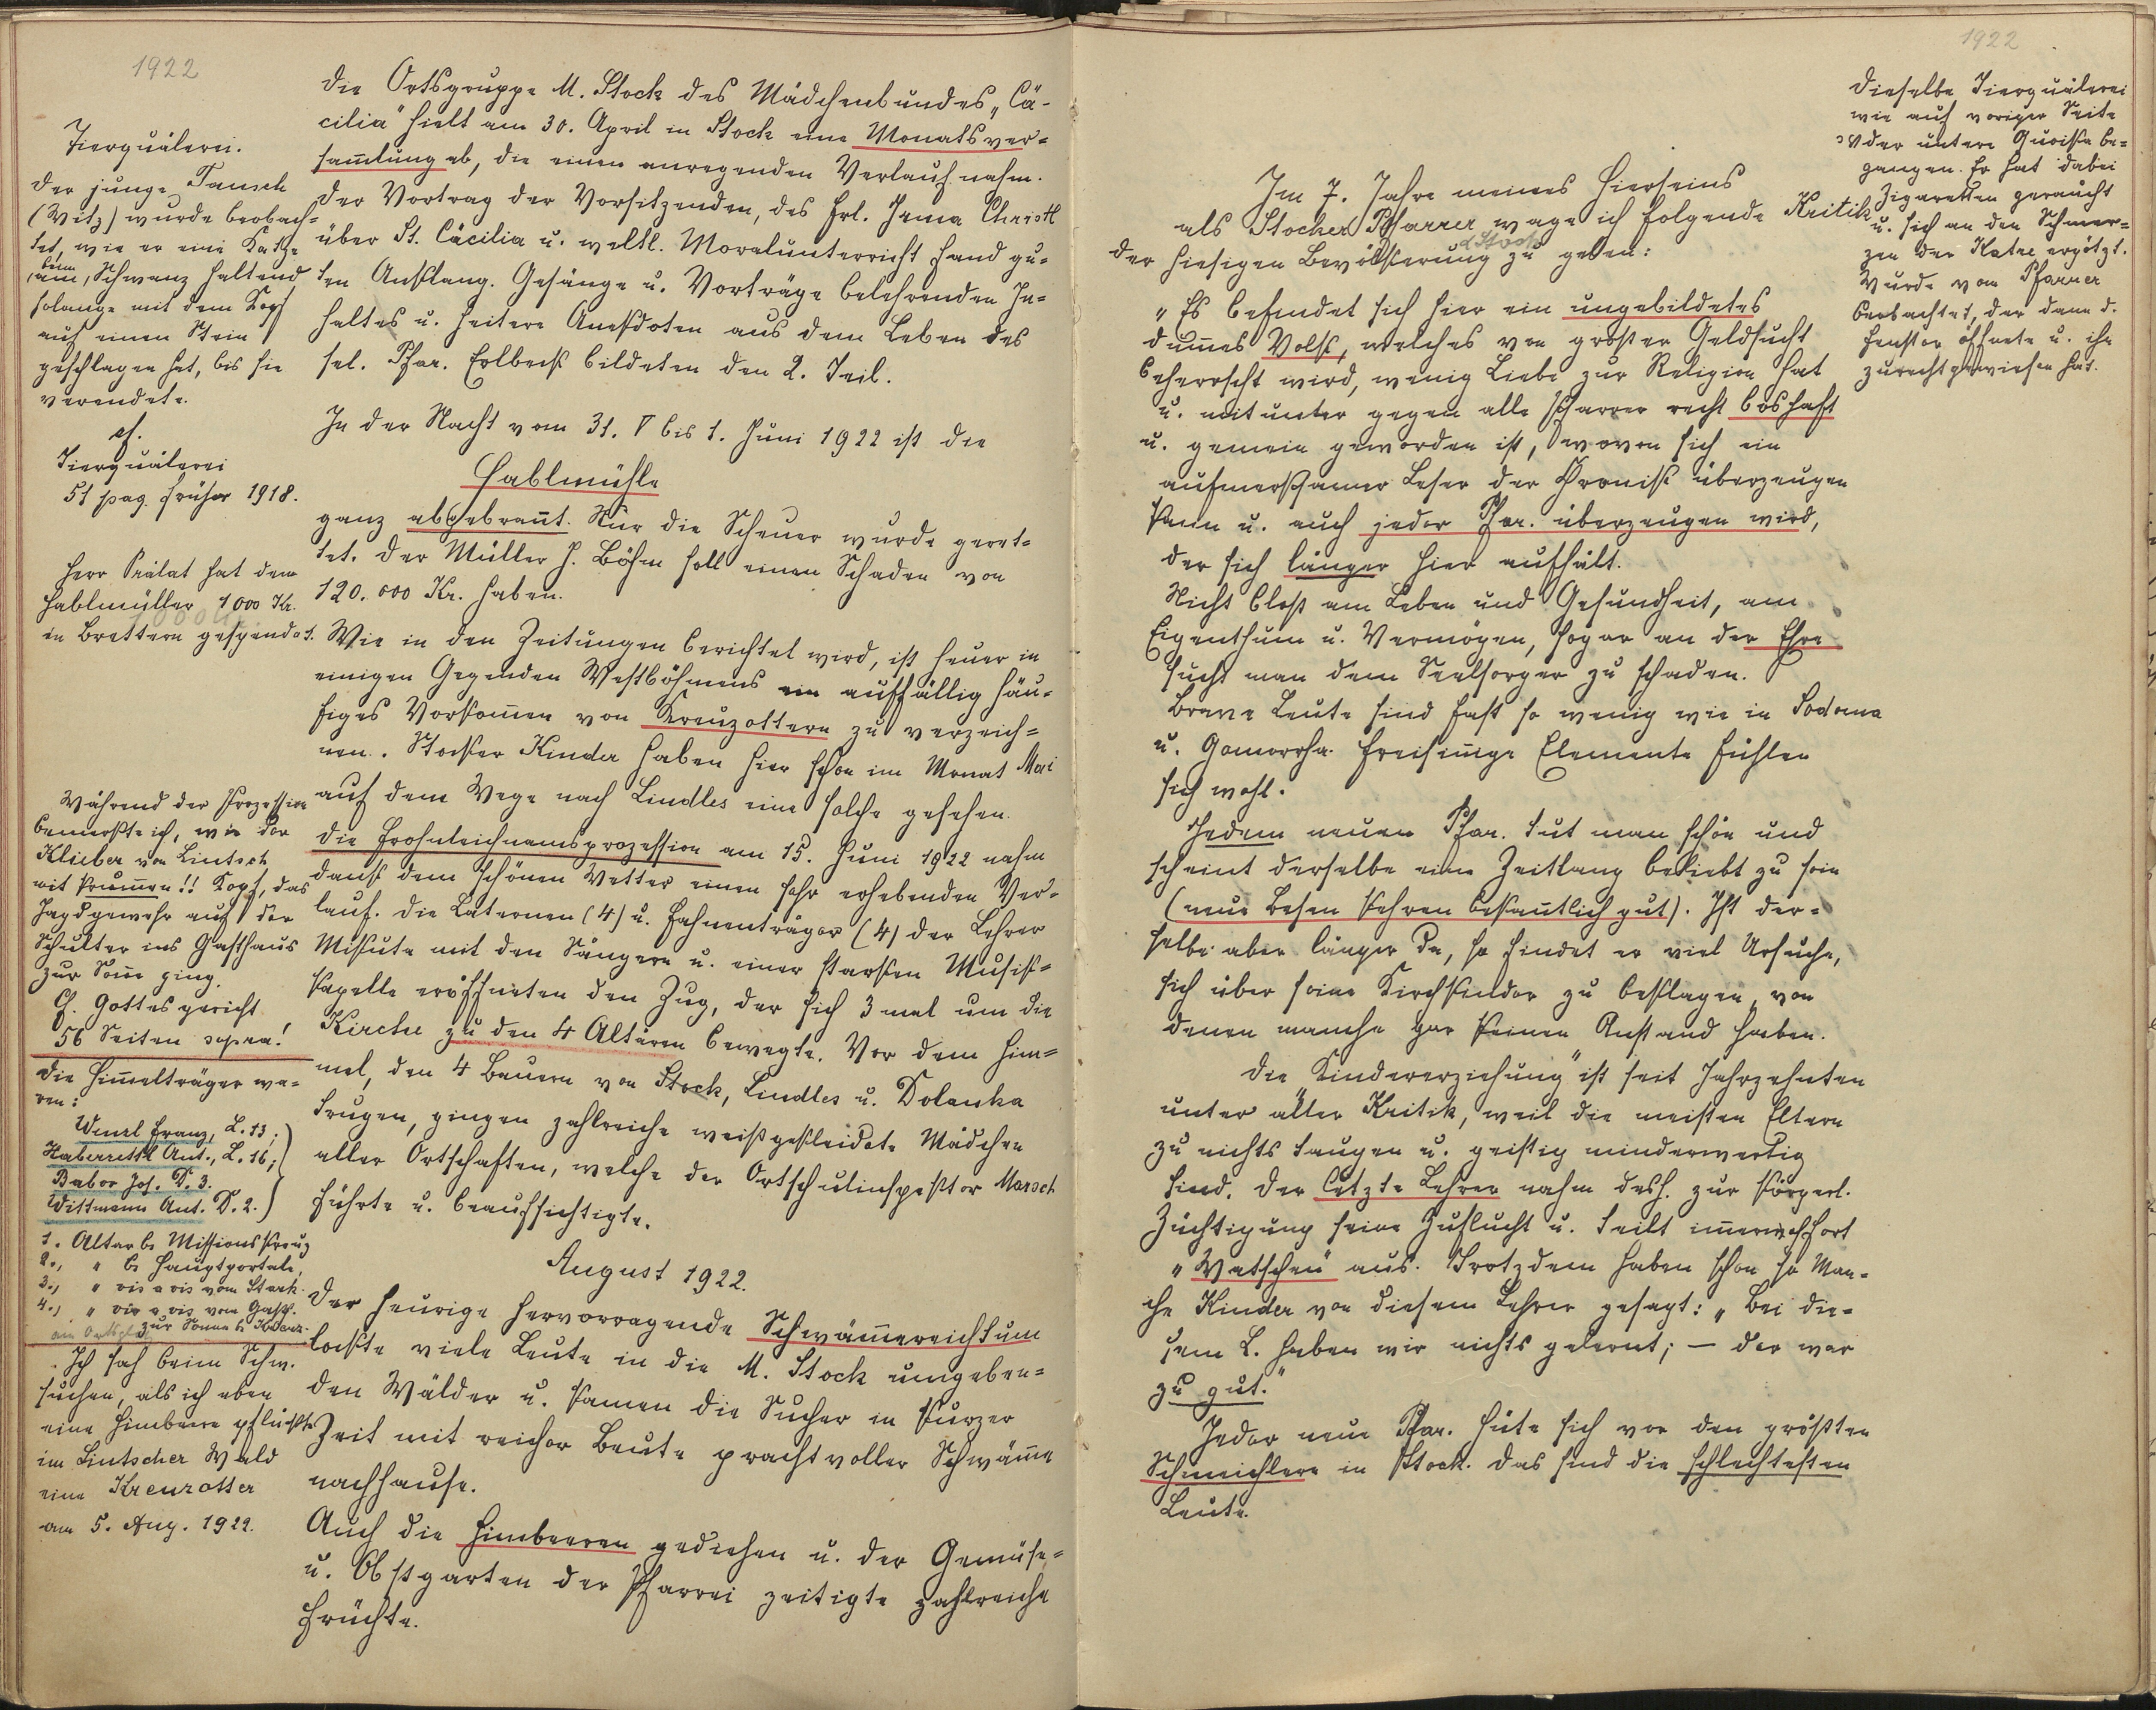 1922
Tierquälerei.
Der junge Tausch
(Witz) wurde beobach-
tet, wie er eine Katze
beim
am, Schwanz haltend
solange mit dem Kopf
auf einen Stein
geschlagen hat, bis sie
verendete.
cf.
Tierquälerei
51 pag. früher 1918.
Herr Prälat hat dem
Hablmüller 1000 Kr.
in Brettern gespendet.
Während der Prozession
bemerkte ich, wie der
Klieber von Lintsch
mit krummen!! Kopf, das
Jagdgewehr auf der
Schulter ins Gasthaus
zur Sonne ging.
Cf. Gottesgericht
56 Seiten supra!
Die Himmelträger wa-
ren:
Franz, L. 13;
Haberrettl Ant., L. 16;
Babor Jos. D. 3.
Wittmann Ant. D. 2.
1. Altar b. Missionskreuz
2., " b. Hauptportale,
3., " vis a vis vom Stark.
4., " vis a vis vom Gasth.
zur Sonne b. Kreuz.
Ich sah beim Schw.
suchen, als ich eben
eine Himbeere pflückte
im Lintscher Wald
eine Kreuzotter
am 5. Aug. 1922.
Die Ortsgruppe M. Stock des Mädchenbundes „Cä-
cilia" hielt am 30. April in Stock eine Monatsver-
sam̅lung ab, die einen anregenden Verlauf nahm.
Der Vortrag der Vorsitzenden, des Frl. Irma Christl
über St. Cäcilia u. weltl. Moralunterricht fand gu-
ten Anklang. Gesänge u. Vorträge belehrenden In-
haltes u. heitere Anekdoten aus dem Leben des
sel. Pfar. Erlbeck bildeten den 2. Teil.
In der Nacht vom 31. V bis 1. Juni 1922 ist die
Hablmühle
ganz abgebran̅t. Nur die Scheuer wurde geret-
tet. Der Müller J. Böhm soll einen Schaden von
120.000 Kr. haben.
Wie in den Zeitungen berichtet wird, ist heuer in
einigen Gegenden Westböhmens ein auffällig häu-
figes Vorkom̅en von Kreuzottern zu verzeich-
nen. Stocker Kinder haben hier schon im Monat Mai
auf dem Wege nach Lindles eine solche gesehen.
Die Frohnleichnamsprozession am 15. Juni 1922 nahm
dank dem schönen Wetter einen sehr erhebenden Ver-
lauf. Die Laternen (4) u. Fahnenträger (4) der Lehrer
Miksute mit den Sängern u. einer starken Musik-
kapelle eröffneten den Zug, der sich 3 mal um die
Kirche zu den 4 Altären bewegte. Vor dem Him-
mel, den 4 Bauern von Stock, Lindles u. Dolanka
trugen, gingen zahlreiche weißgekleidete Mädchen
aller Ortschaften, welche der Ortschulinspektor Marsch
führte u. beaufsichtigte.
August 1922.
Der heurige hervorragende Schwäm̅ereichtum
lockte viele Leute in die M. Stock umgeben-
den Wälder u. kamen die Sucher in kurzer
Zeit mit reicher Beute prachtvoller Schwäm̅e
nachhause.
Auch die Himbeeren gediehen u. der Gemüse-
u. Obstgarten der Pfarrei zeitigte zahlreiche
Früchte.
1922
Im 7. Jahre meines Hierseins
als Stocker Pfarrer wage ich folgende Kritik
der hiesigen Bevölkerung zu geben:
„Es befindet sich hier ein ungebildetes
dum̅es Volk, welches von großer Geldsucht
beherrscht wird, wenig Liebe zur Religion hat
u. mitunter gegen alle Pfarrer recht boshaft
u. gemein geworden ist, wovon sich ein
aufmerksamer Leser der Chronik überzeugen
kann u. auch jeder Pfar. überzeugen wird,
der sich länger hier aufhält.
Nicht bloß am Leben und Gesundheit, am
Eigenthum u. Vermögen, sogar an der Ehre
sucht man dem Seelsorger zu schaden.
Brave Leute sind fast so wenig wie in Sodoma
u. Gomorrha. Freisin̅ige Elemente fühlen
sich wohl.
Jedem neuen Pfar. tut man schön und
scheint derselbe eine Zeitlang beliebt zu sein
(neue Besen kehren bekan̅tlich gut). Ist der-
selbe aber länger da, so findet er viel Ursache,
sich über seine Kirchkinder zu beklagen, von
denen manche gar keinen Anstand haben.
Die „Kindererziehung" ist seit Jahrzehnten
unter aller Kritik, weil die meisten Eltern
zu nichts taugen u. geistig minderwertig
sind. Der letzte Lehrer nahm desh. zur körperl.
Züchtigung seine Zuflucht u. teilt im̅erfort
„Watschen" aus. Trotzdem haben schon so Man-
che Kinder von diesem Lehrer gesagt: „Bei die-
sem L. haben wir nichts gelernt; — der war
zu gut."
Jeder neue Pfar. hüte sich vor den größten
Schmeichlern in Stock. Das sind die schlechtesten
Leute.
Dieselbe Tierquälerei
wie auf voriger Seite
der untere Quoika be-
gangen. Er hat dabei
Zigaretten geraucht
u. sich an den Schmer-
zen der Katze ergötzt.
Wurde vom Pfarrer
beobachtet, der dann d.
Fenster öffnete u. ihn
zurechtgewiesen hat.